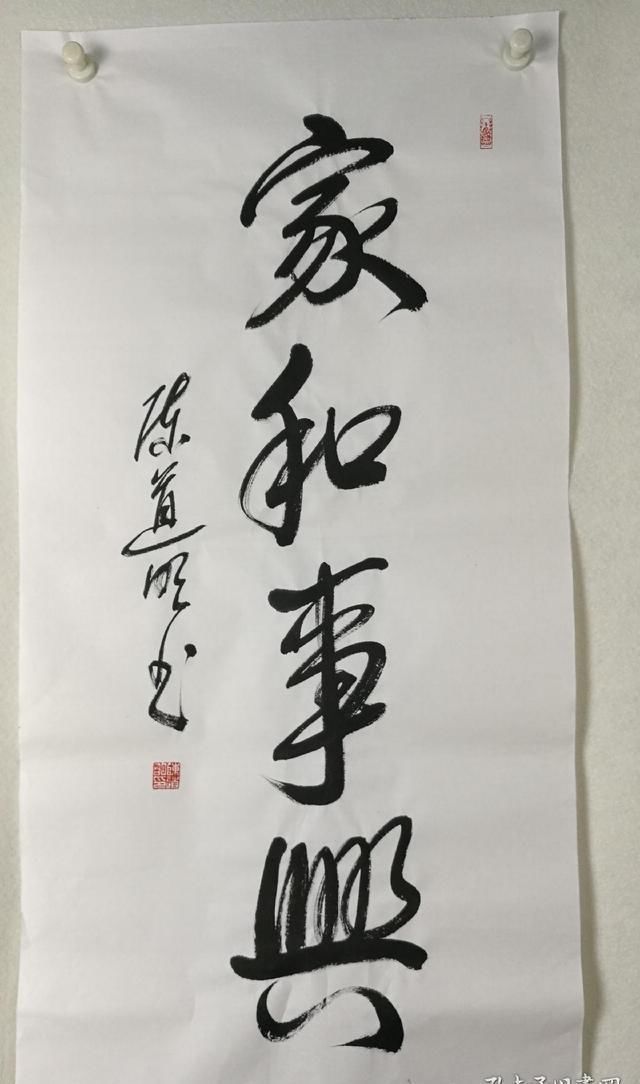 家和事興
陈道明书